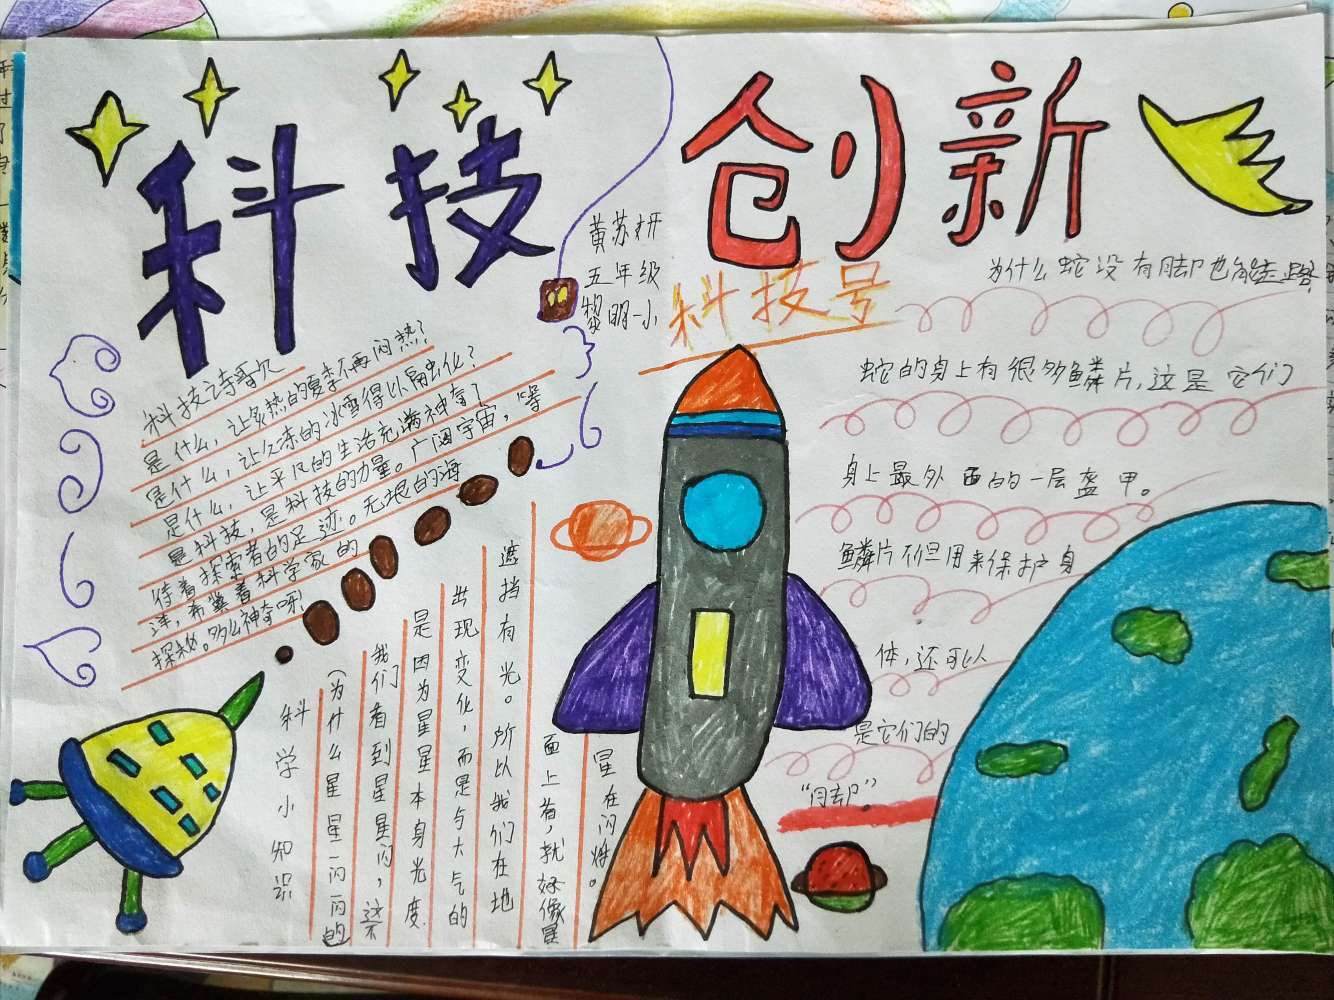 科技
创新
黄苏妍
五年级
黎明小
科技号
科技之诗歌欠
是什么，让炎热的夏季不再闷热？
是什么，让久冻的冰雪得以融化？
是什么，让平凡的生活充满神奇？
是科技，是科技的力量。广阔宇宙，等
待着探索者的足迹。无垠的海
洋，希冀着科学家的
探秘。多么神奇呀！
科学小知识
（为什么星星一闪一闪的
我们看到星星闪，这不
是因为星星本身光度
出现变化，而是与大气的
遮挡有光。所以我们在地
面上看，就好像星
星在闪烁。
为什么蛇没有脚也能走路
蛇的身上有很多鳞片，这是它们
身上最外面的一层盔甲。
鳞片不但用来保护身
体，还可以
是它们的
“脚”